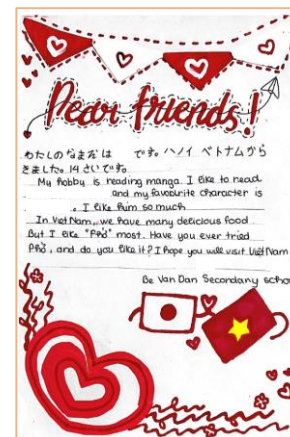 Dear friends!
わたしの なまえ は です。ハノイ ベトナムから
きました。14 さいです。
My hobby is reading manga. I like to read
and my favourite character is
. I like him so much
In Viet Nam, we have many delicious food
But I like "Phở" most. Have you ever tried
Phở, and do you like it? I hope you will visit Việt Nam
Be Van Dan Secondary school